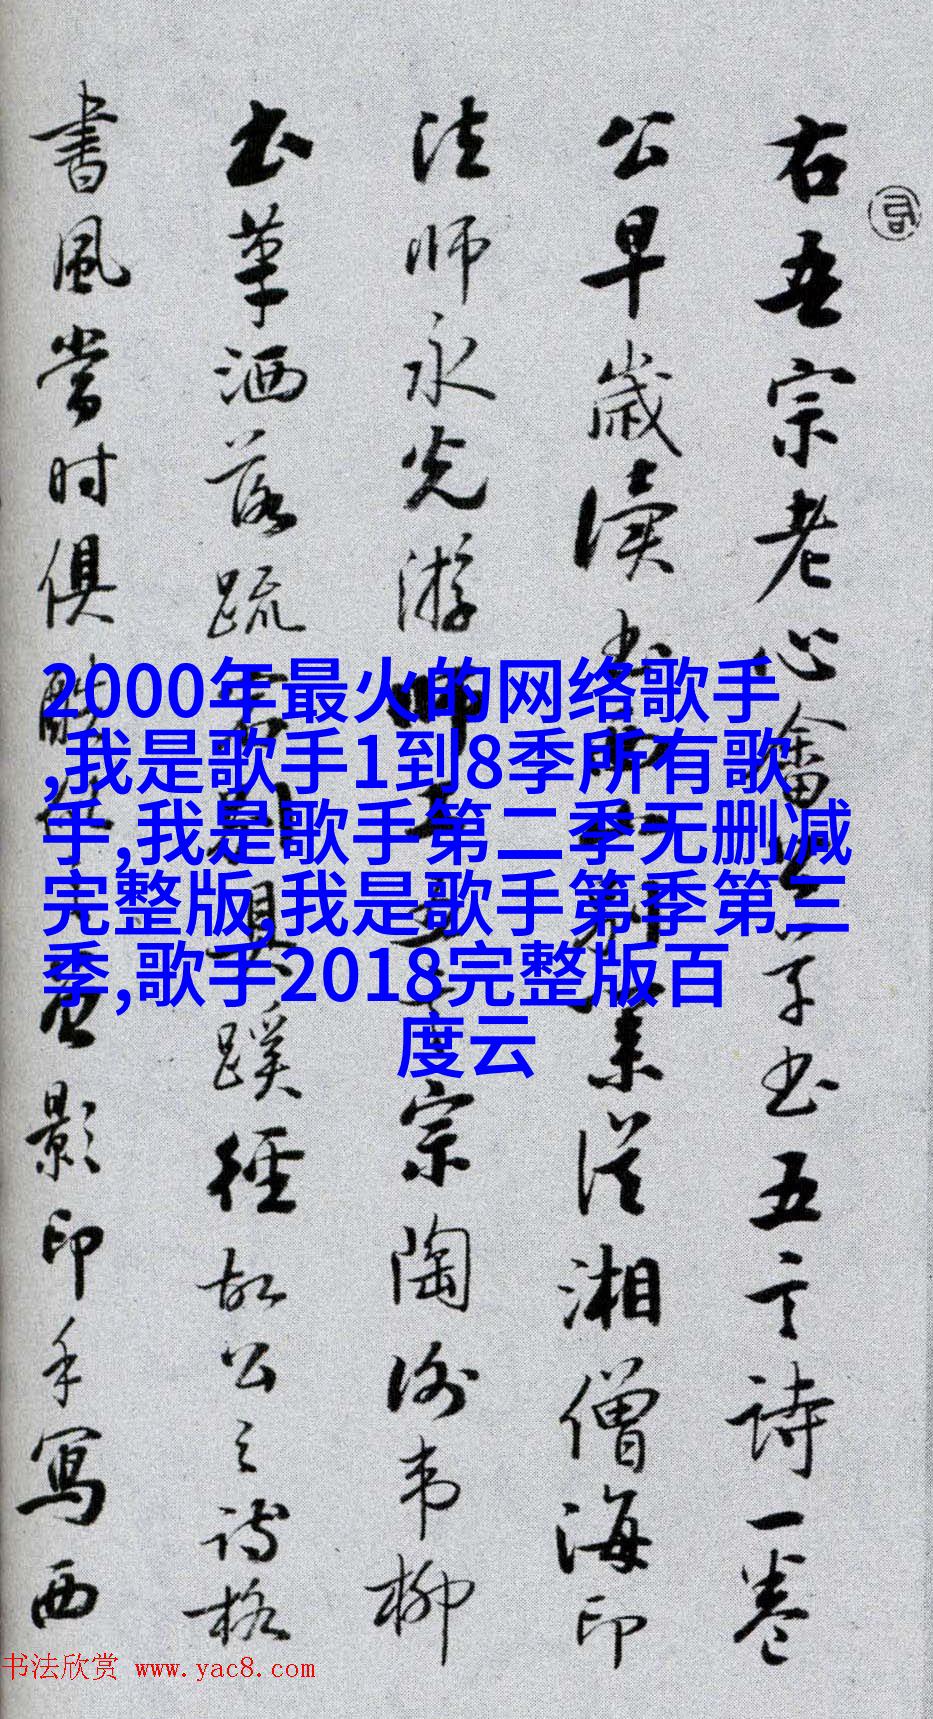 右吾宗老心畬子书五言詩一卷
公早歲讀书西山業從湘僧海印
法師永光游宗陶謝韋柳
书草洒落疏別具蹊徑故公之詩格
書風當時俱影印手寫西
2000年最火的网络歌手
,我是歌手1到8季所有歌
手,我是歌手第二季无删减
完整版,我是歌手第季第三
季,歌手2018完整版百
度云
书法欣赏 www.yac8.com